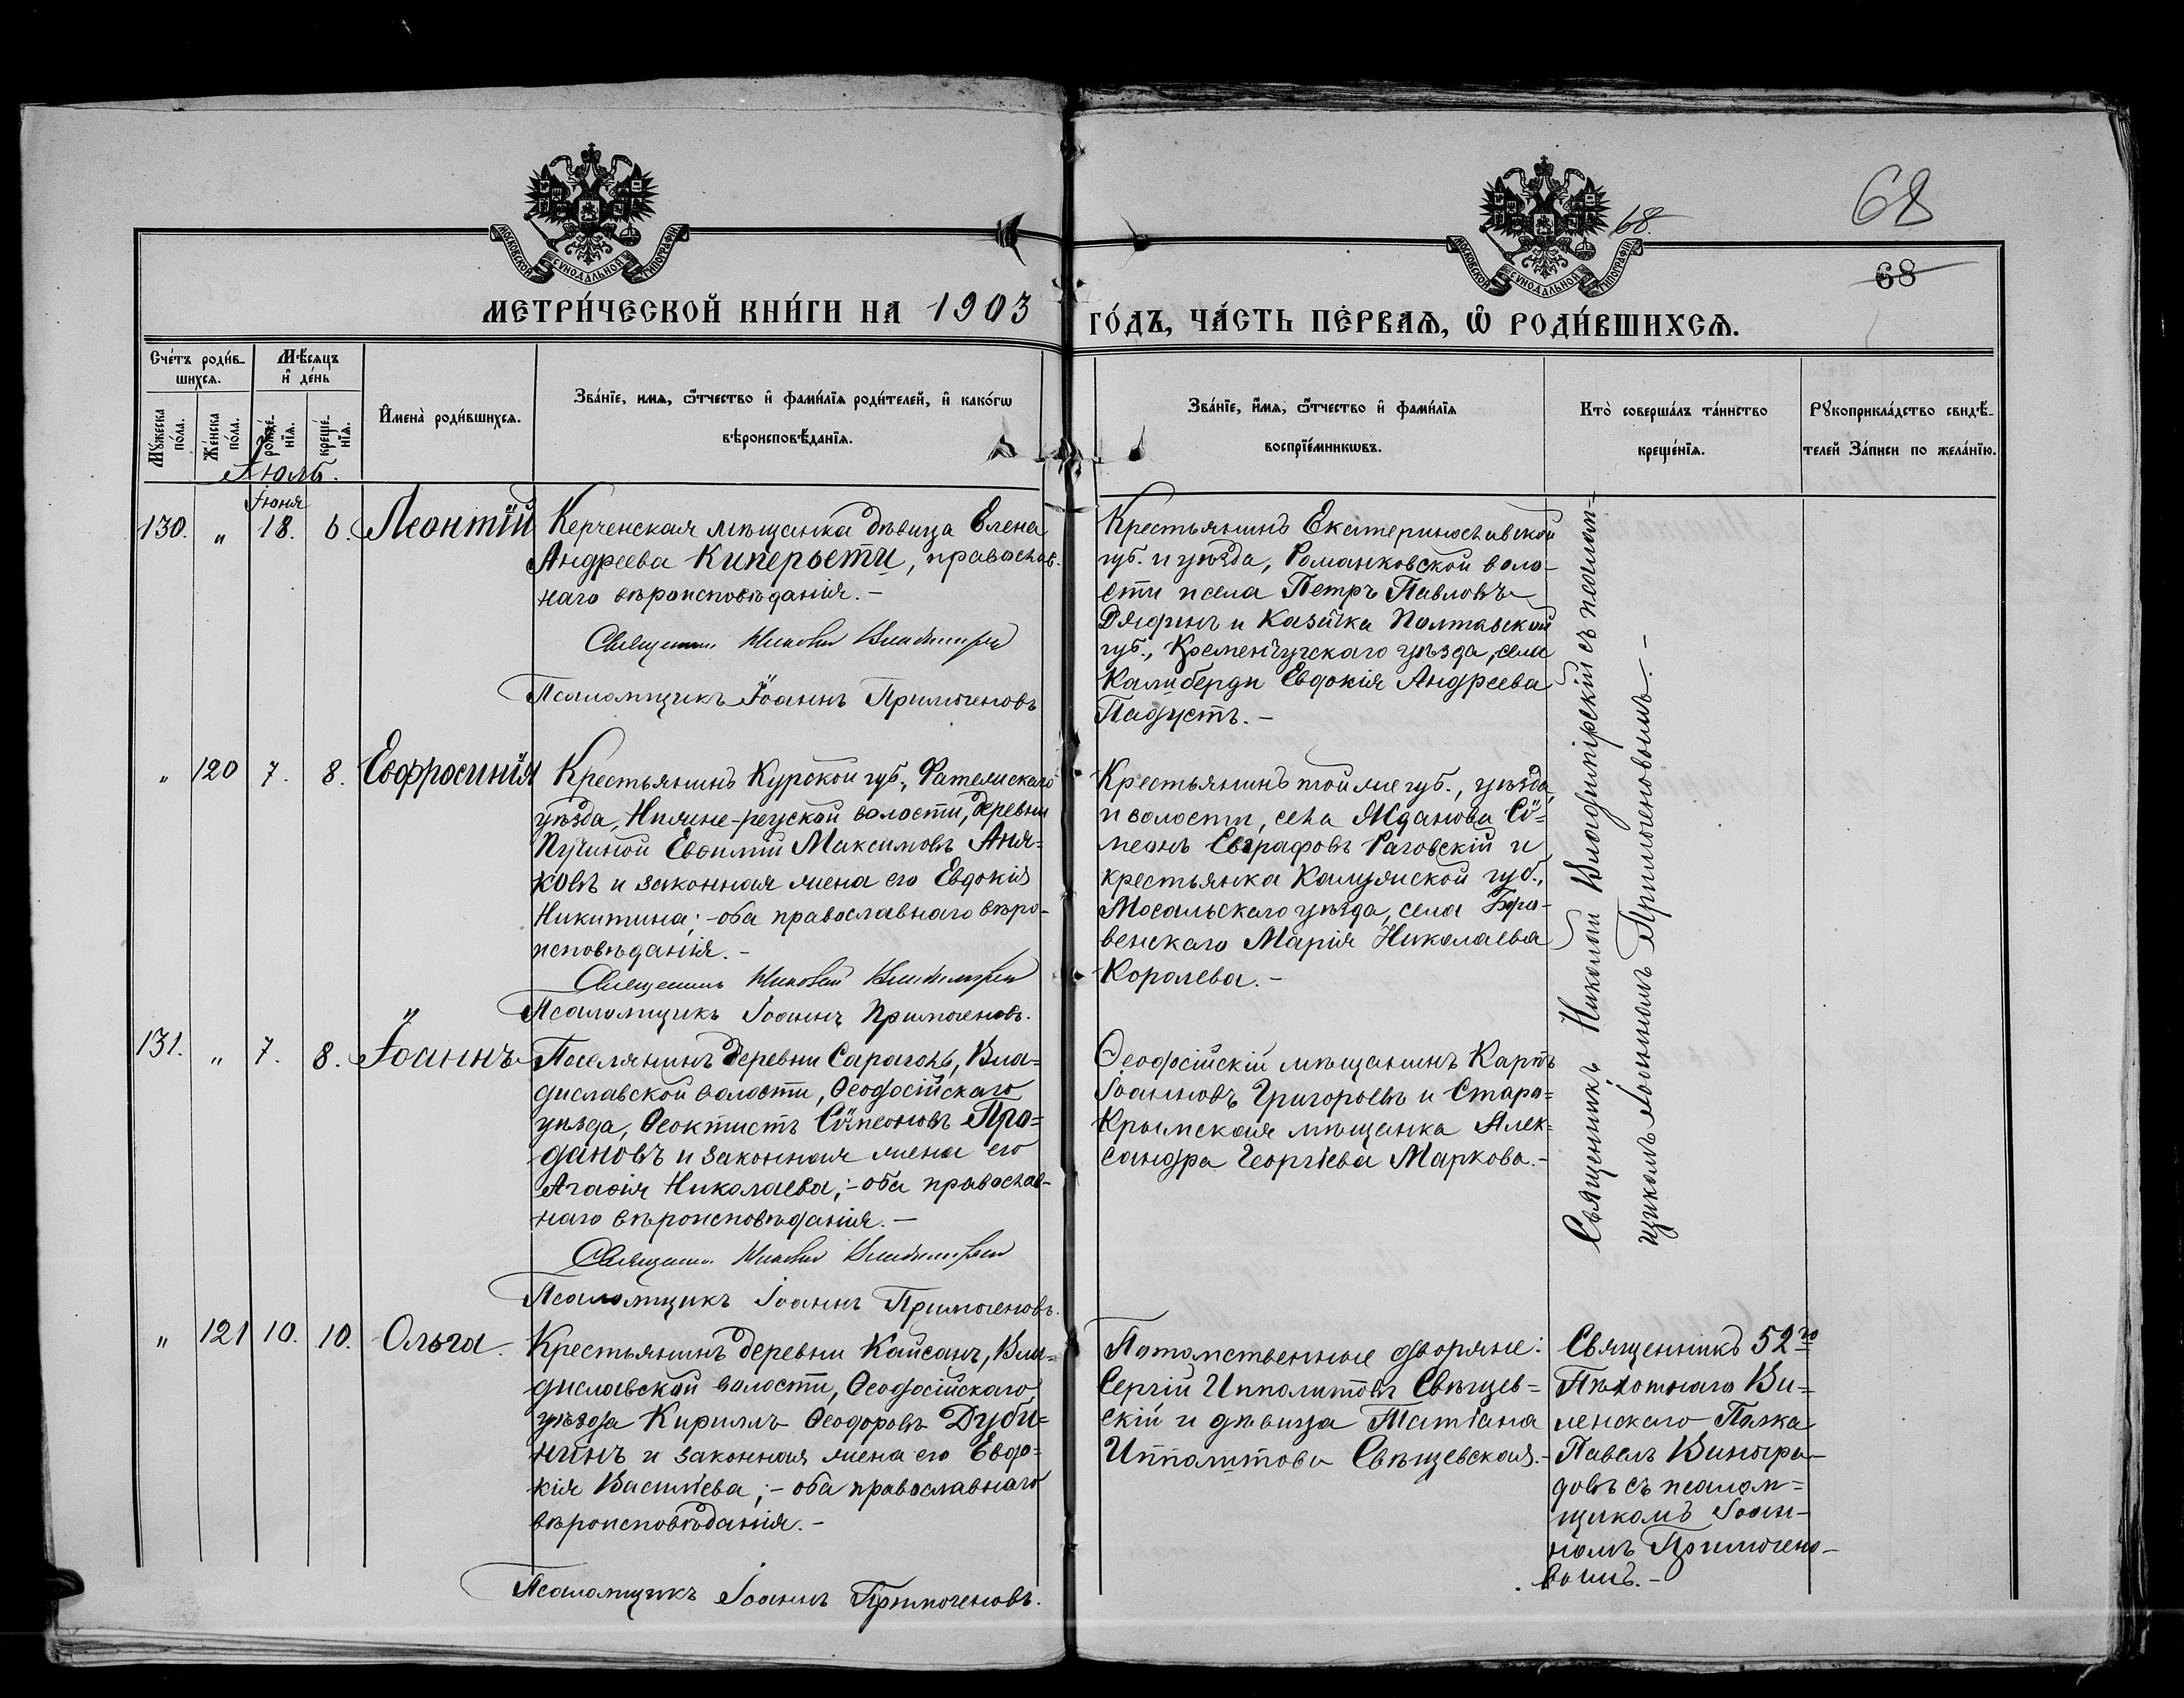 68.
68
68
МОСКОВСКОЙ СѴНОДАЛЬНОЙ ТИПОГРАФІИ
МОСКОВСКОЙ СѴНОДАЛЬНОЙ ТИПОГРАФІИ
МЕТРИ́ЧЕСКОЙ КНИ́ГИ НА 1903 ГО́ДЪ, ЧА́СТЬ ПЕ́РВАѦ, Ѡ҆ РОДИ́ВШИХСѦ.
Сче́тъ роди́в-
шихсѧ.
Мꙋ́жеска по́ла.
Же́нска по́ла.
Мѣ́сѧцъ
и҆ де́нь
рожде́-нїѧ.
креще́-нїѧ.
И҆мена̀ роди́вшихсѧ.
Зва́нїе, имѧ, ѿтчество и҆ фами́лїѧ роди́телей, и҆ како́гѡ
вѣроисповѣ́данїѧ.
Зва́нїе, и҆́мѧ, ѿтчество и҆ фами́лїѧ
воспрїе́мникѡвъ.
Кто̀ соверша́лъ та́инство
креще́нїѧ.
Рꙋкоприкла́дство свидѣ́-
телей За́писи по жела́нїю.
Іюль.
Іюня
130. „ 18. 6. Леонтій
Керченская мѣщанка дѣвица Елена
Андреева Киперьети, православ-
наго вѣроисповѣданія.-
Священникъ Николай Владимірскій
Псаломщикъ Іоаннъ Примогеновъ
Крестьянинъ Екатеринославской
губ. и уѣзда, Романковской воло-
сти и села Петръ Павловъ
и Казачка Полтавской
губ., Кременчугскаго уѣзда, села
Калиберди Евдокія Андреева
Падустъ.-
Священникъ Николай Владимірскій съ псалом-
щикомъ Іоанномъ Примогеновымъ.-
„ 120 7. 8. Евфросинія
Крестьянинъ Курской губ., Фатежскаго
уѣзда, Нижне-реутской волости, деревни
Пучиной Евѳимій Максимовъ Аня-
ковъ и законная жена его Евдокія
Никитина;-оба православнаго вѣро-
исповѣданія.-
Священникъ Николай Владимірскій
Псаломщикъ Іоаннъ Примогеновъ.
Крестьянинъ той же губ., уѣзда,
и волости, села Жданова Сѵ-
меонъ Евграфовъ Раговскій и
крестьянка Калужской губ.,
Мосальскаго уѣзда, села Боро-
венскаго Марія Николаева
Королева.-
131. „ 7. 8. Іоаннъ
Поселянинъ деревни Сараголъ, Вла-
диславской волости, Ѳеодосійскаго
уѣзда, Ѳеоктистъ Сѵмеоновъ Про-
дановъ и законная жена его
Агаѳія Николаева;-оба православ-
наго вѣроисповѣданія.-
Священникъ Николай Владимірскій
Псаломщикъ Іоаннъ Примогеновъ.
Ѳеодосійскій мѣщанинъ Карпъ
Іоанновъ Григорьевъ и Старо-
Крымская мѣщанка Алек-
сандра Георгіева Маркова.-
„ 121 10. 10. Ольга.
Крестьянинъ деревни Кайсанъ, Вла-
диславской волости, Ѳеодосійскаго
уѣзда Кириллъ Ѳеодоровъ Дуби-
нинъ и законная жена его Евдо-
кія Васильева;-оба православнаго
вѣроисповѣданія.-
Псаломщикъ Іоаннъ Примогеновъ.
Потомственные дворяне:
Сергій Ипполитовъ Свѣщев-
скій и дѣвица Татіана
Ипполитова Свѣщевская.-
Священникъ 52го
Пѣхотнаго Ви-
ленскаго Полка
Павелъ Виногра-
довъ съ псалом-
щикомъ Іоан-
номъ Примогено-
вымъ.-